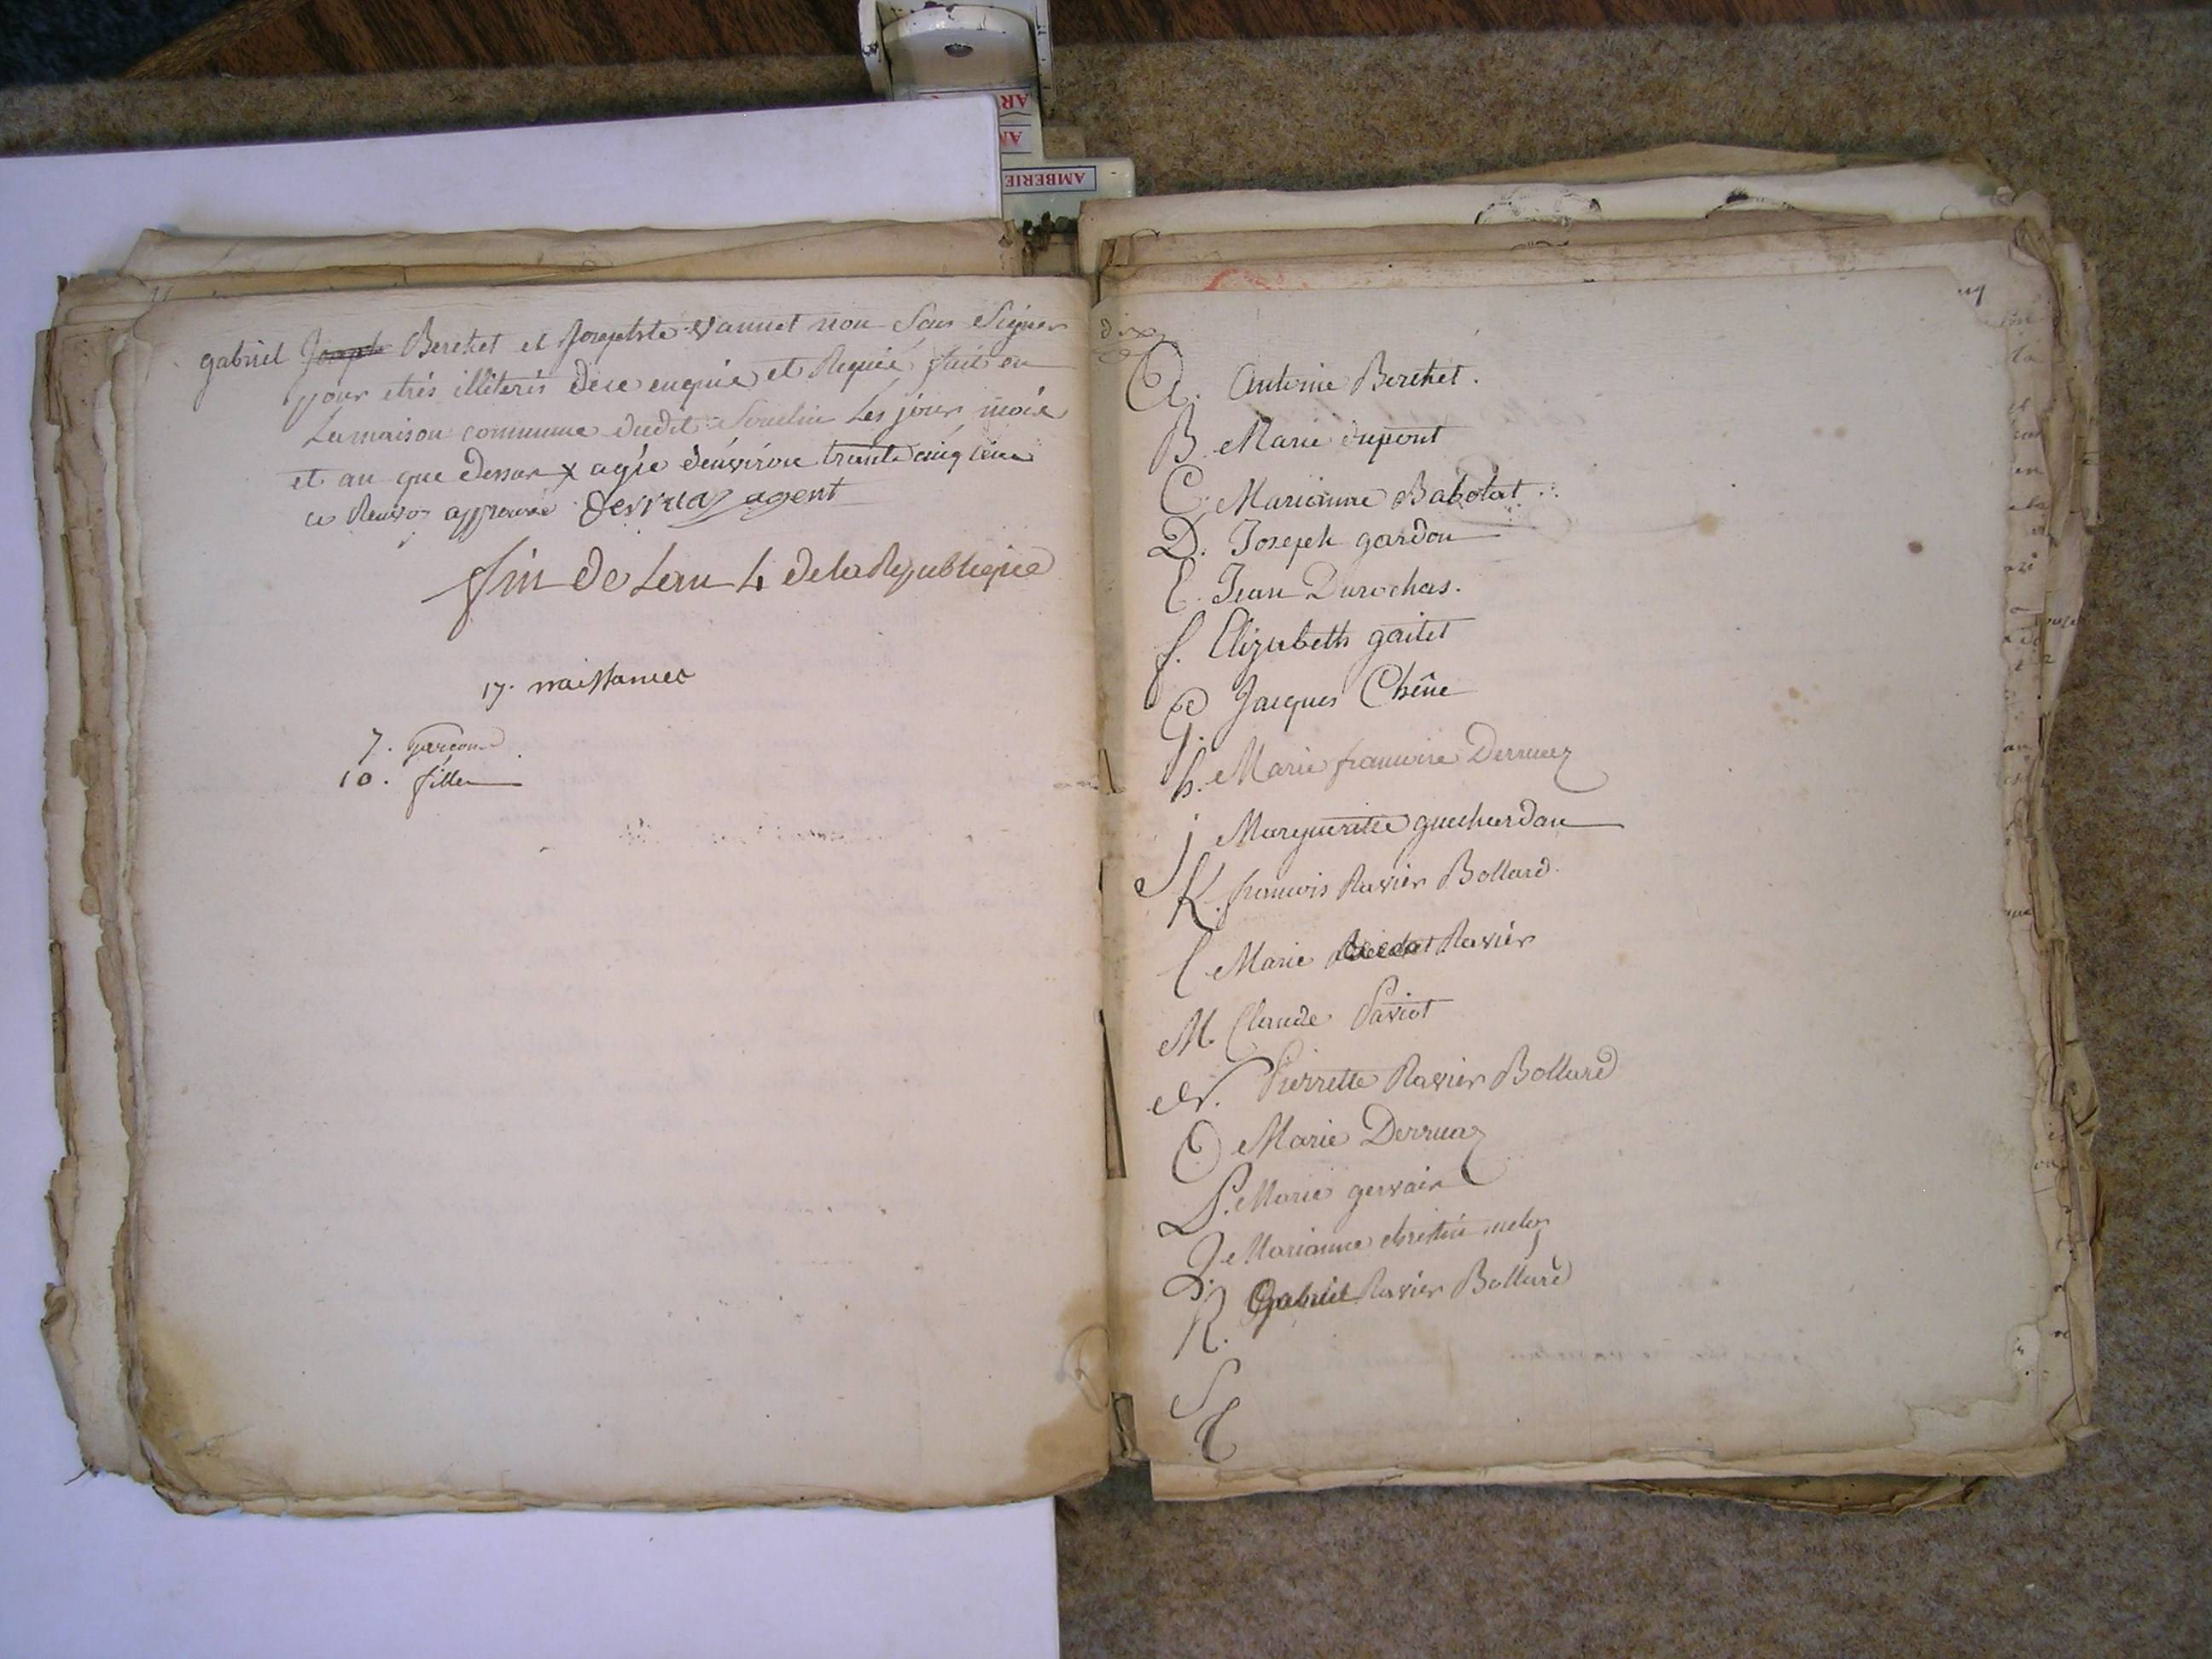 AMBERIE
gabriel Joseph Berthet et Josephte vannet non Sous Signer
pour etrés illiterés de ce enquie et Requie fait en
La maison commune dudit Soudin Les jour mois
et an que dessus x agée d'environ trante cinq
ce Renvoy approuvé Derruaz agent
fin de Lan 4 de la Republique
17. naissances
7. garcons
10. filles
dix
A. Antoine Berthet.
B. Marie dupont
C. Marianne Babolat
D. Joseph gardon
E. Jean Durochas.
f. Elizabeth gaitet
G. Jacques Chêne
h. Marie francoise Derruez
j Marguerite guechardan
K. francois Ravier Bollard.
l Marie Ravier
M. Claude Paviot
N. Pierrette Ravier Bollard
O Marie Derruaz
P. Marie gervais
Q. Marianne christin
R. Gabriel Ravier Bollard
S
T